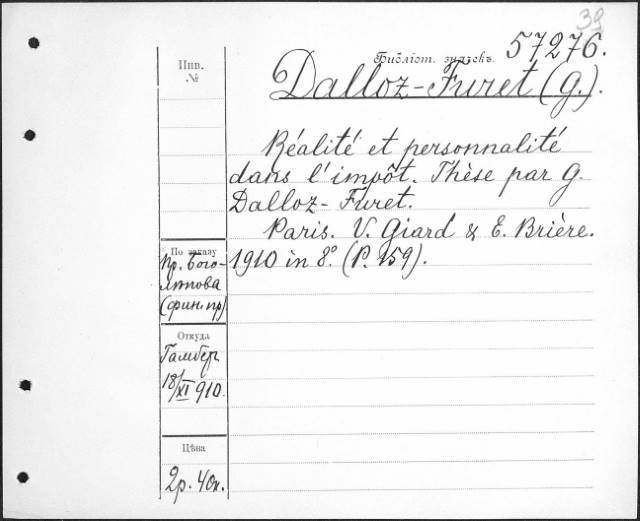 39
Библіот. значекъ 57276.
Dalloz-Furet (G.).
Инв.
№
Réalité et personnalité
dans l'impôt. Thèse par G.
Dalloz-Furet.
Paris. V. Giard & E. Brière.
1910 in 8º. (P. 159).
По заказу
пр. Бого-
лѣпова
(фин. пр)
Откуда
Гамбер
18/XI 910.
Цѣна
2р. 40к.